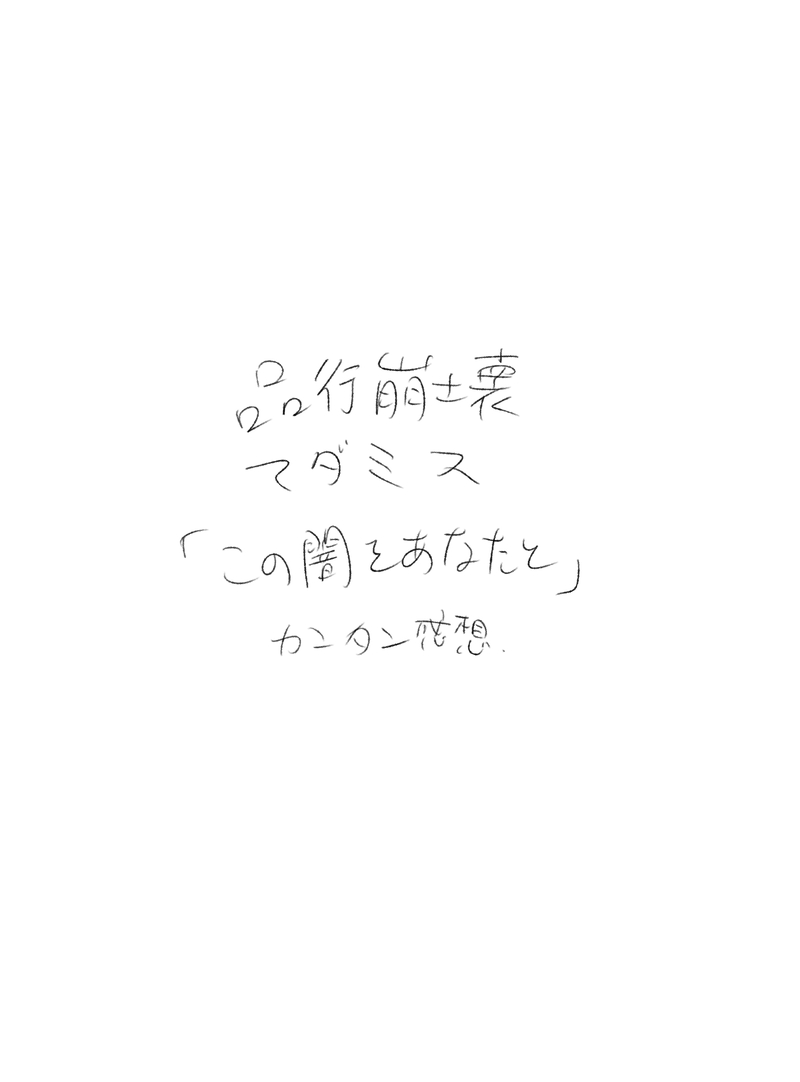 品行崩壊
マダミス
「この闇をあなたと」
カンタン感想.